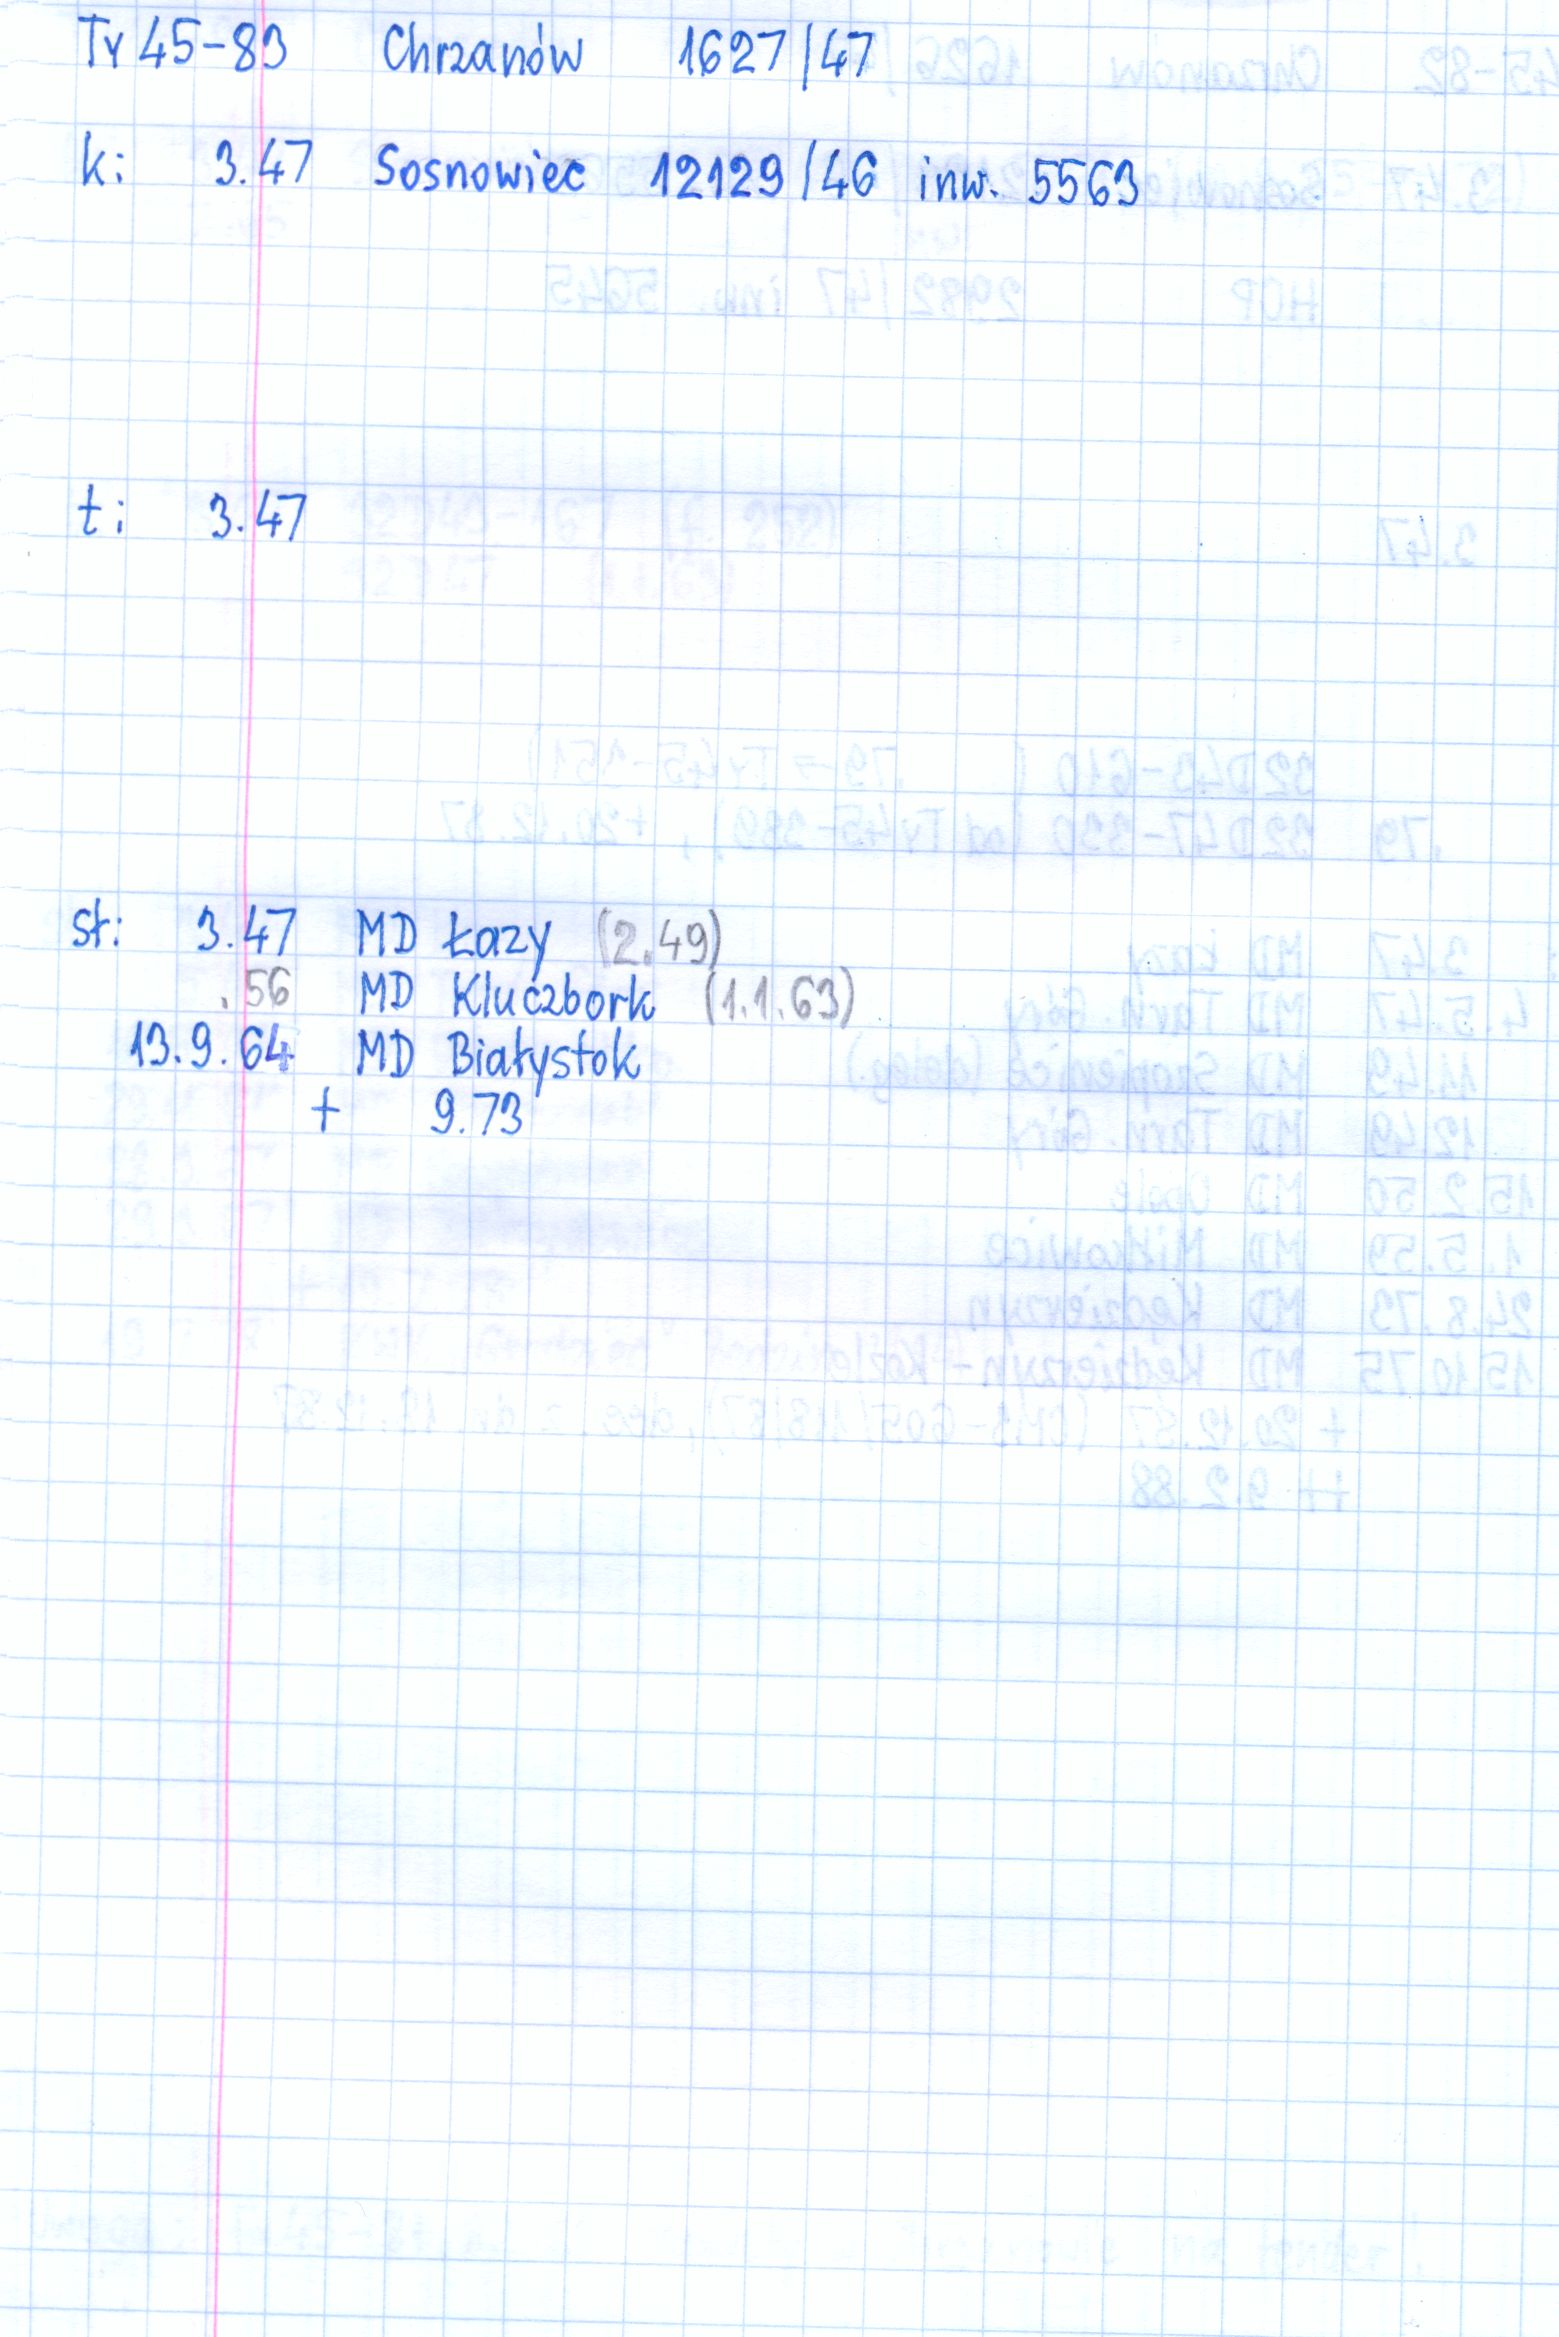 Ty 45-83 Chrzanów 1627/47
k: 3.47 Sosnowiec 12129/46 inw. 5563
t: 3.47
sł: 3.47 MD Łazy (2.49)
.56 MD Kluczbork (1.1.63)
13.9.64 MD Białystok
+ 9.73